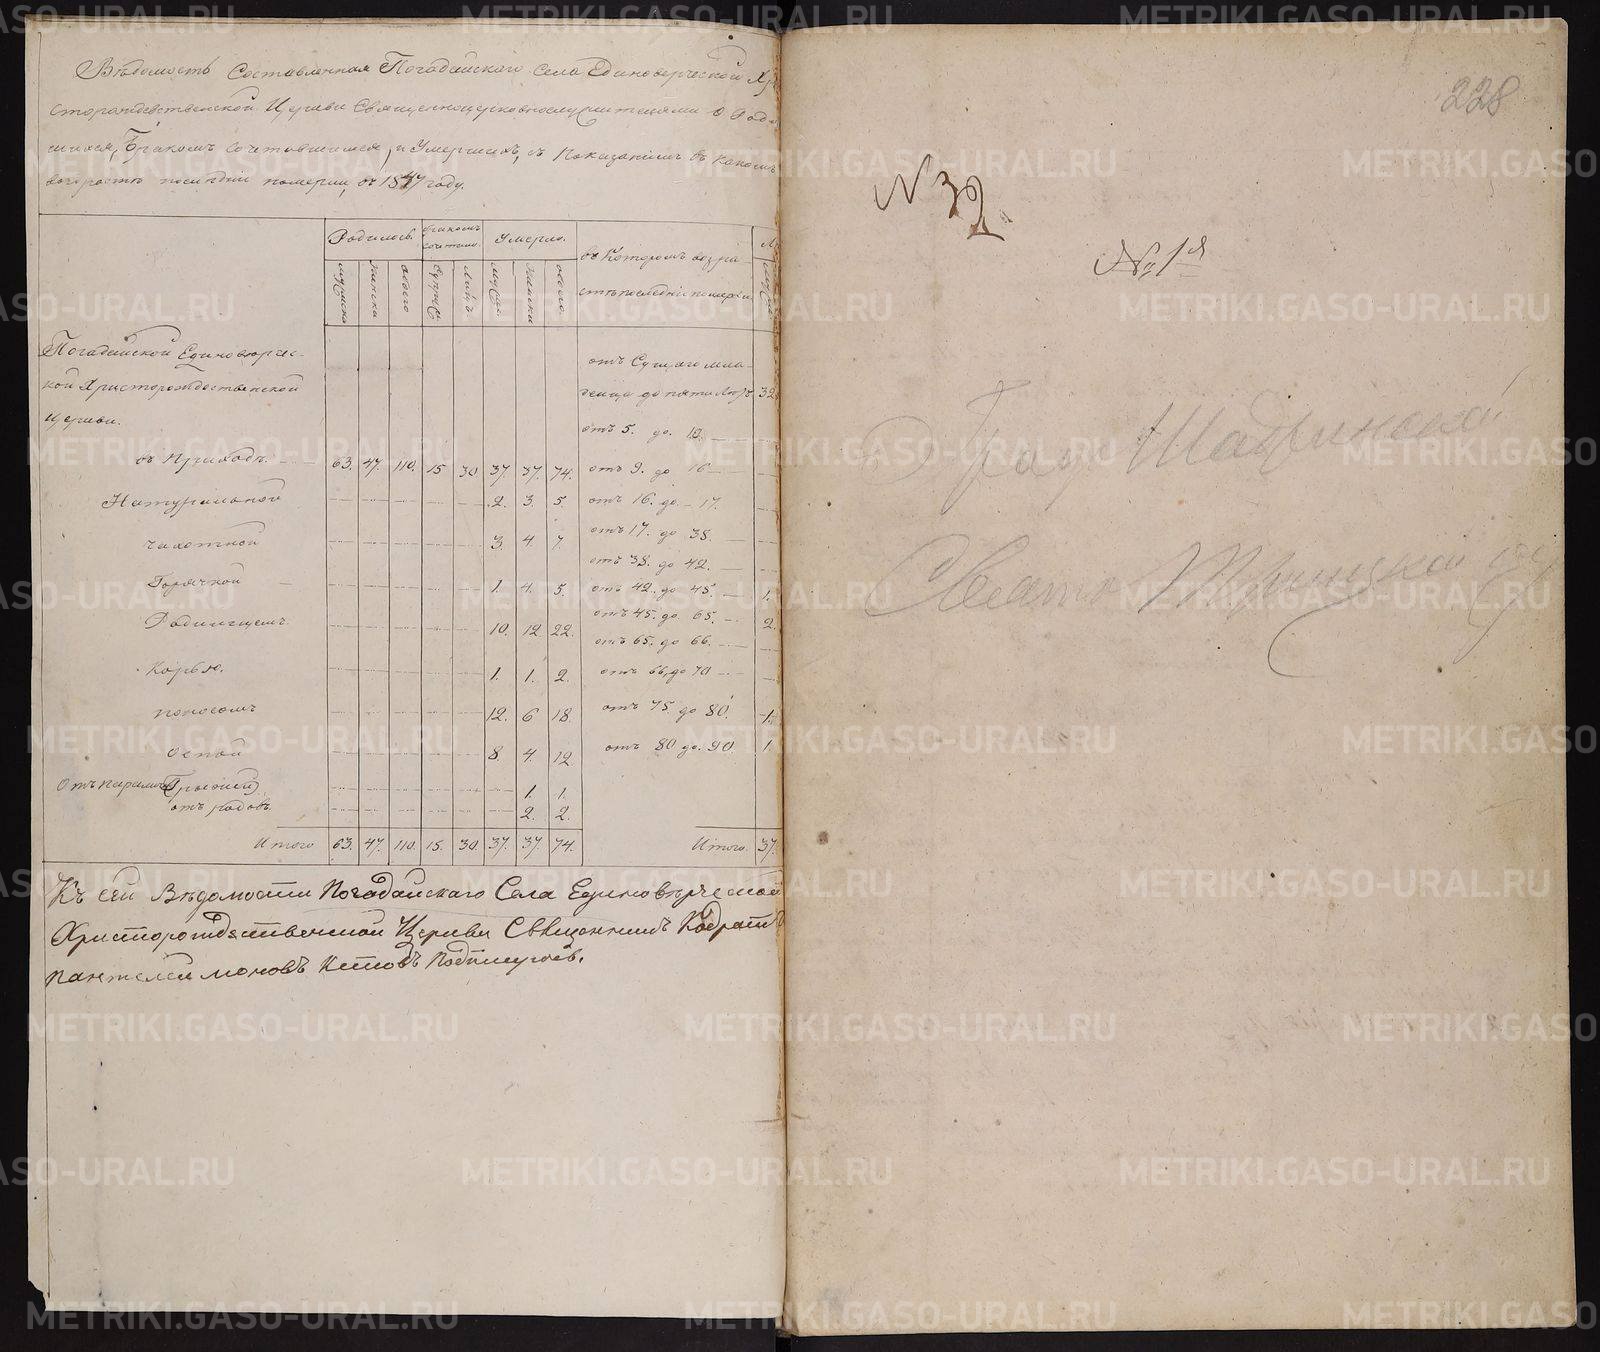 Вѣдомость Составленная Погадайскаго Села Единоверческой Хри
сторождественской Церкви Священноцерковнослужителями о Роди
шихся, Бракомъ Сочетавшихся, и Умершихъ, съ Показаніемъ въ какомъ
возрастѣ послѣдніи померли, въ 1847 году.
Родилось. бракомъ сочетало. Умерло. въ Которомъ возра-
стѣ послѣдніи померли.
мужска женска обоего супруж. лицъ мужс. женска обоего.
Погадайской Единоверчес-
кой Христорождественской
Церкви.
отъ Сущаго мла-
денца до пяти лѣтъ 32
отъ 5. до. 10.
въ Приходѣ. 63. 47. 110. 15 30 37. 37. 74. отъ 9. до 16
Натуральной 2. 3. 5. отъ 16. до 17.
чахоткой 3. 4. 7. отъ 17. до 38.
отъ 38. до 42.
Горячкой 1. 4. 5. отъ 42. до 45. 1.
Родимцемъ 10. 12. 22. отъ 45. до 65. 2.
отъ 65. до 66.
Корью. 1. 1. 2. отъ 66. до 70
поносомъ 12. 6 18. отъ 75 до 80. 1.
оспой 8. 4. 12 отъ 80 до 90. 1.
Отъ 1. 1.
отъ родовъ. 2. 2.
Итого 63. 47. 110. 15. 30. 37. 37. 74. Итого. 37.
Къ сей Вѣдомости Погадайскаго Села Единовѣрческой
Христорождественской Церкви Священникъ
Пантелеимоновъ
228
N 32.
№ 1й
Град Шадринской
Свято Троицкой
METRIKI.GASO-URAL.RU